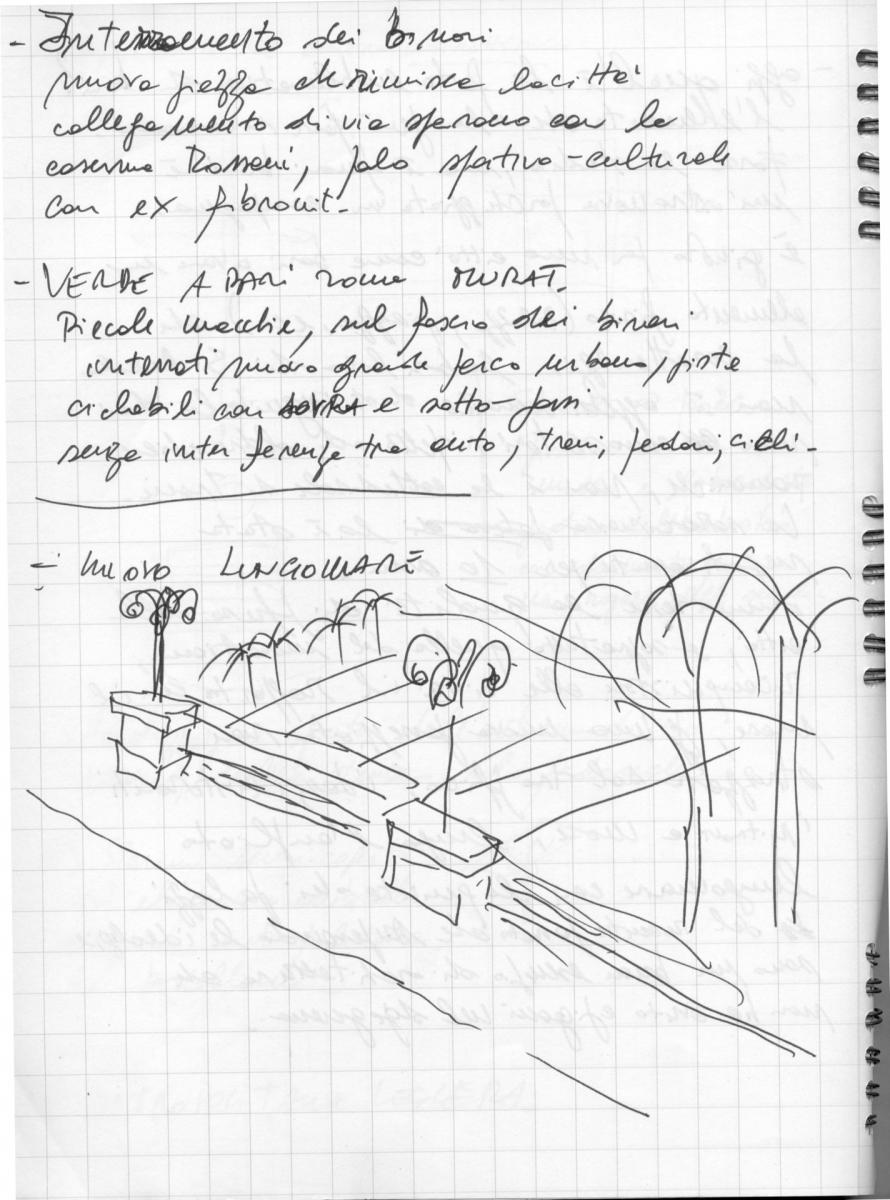 - Interramento dei binari
nuova piazza che riunisce la città
collegamento di via sparano con la
caserma Rossani, polo sportivo-culturale
con ex fibronit.
- VERDE A BARI zona MURAT.
Piccole macchie, sul fascio dei binari
interrati nuovo grande parco urbano, piste
ciclabili con SOVRA e sotto-passi
senza interferenze tra auto, treni, pedoni, cicli-
- NUOVO LUNGOMARE